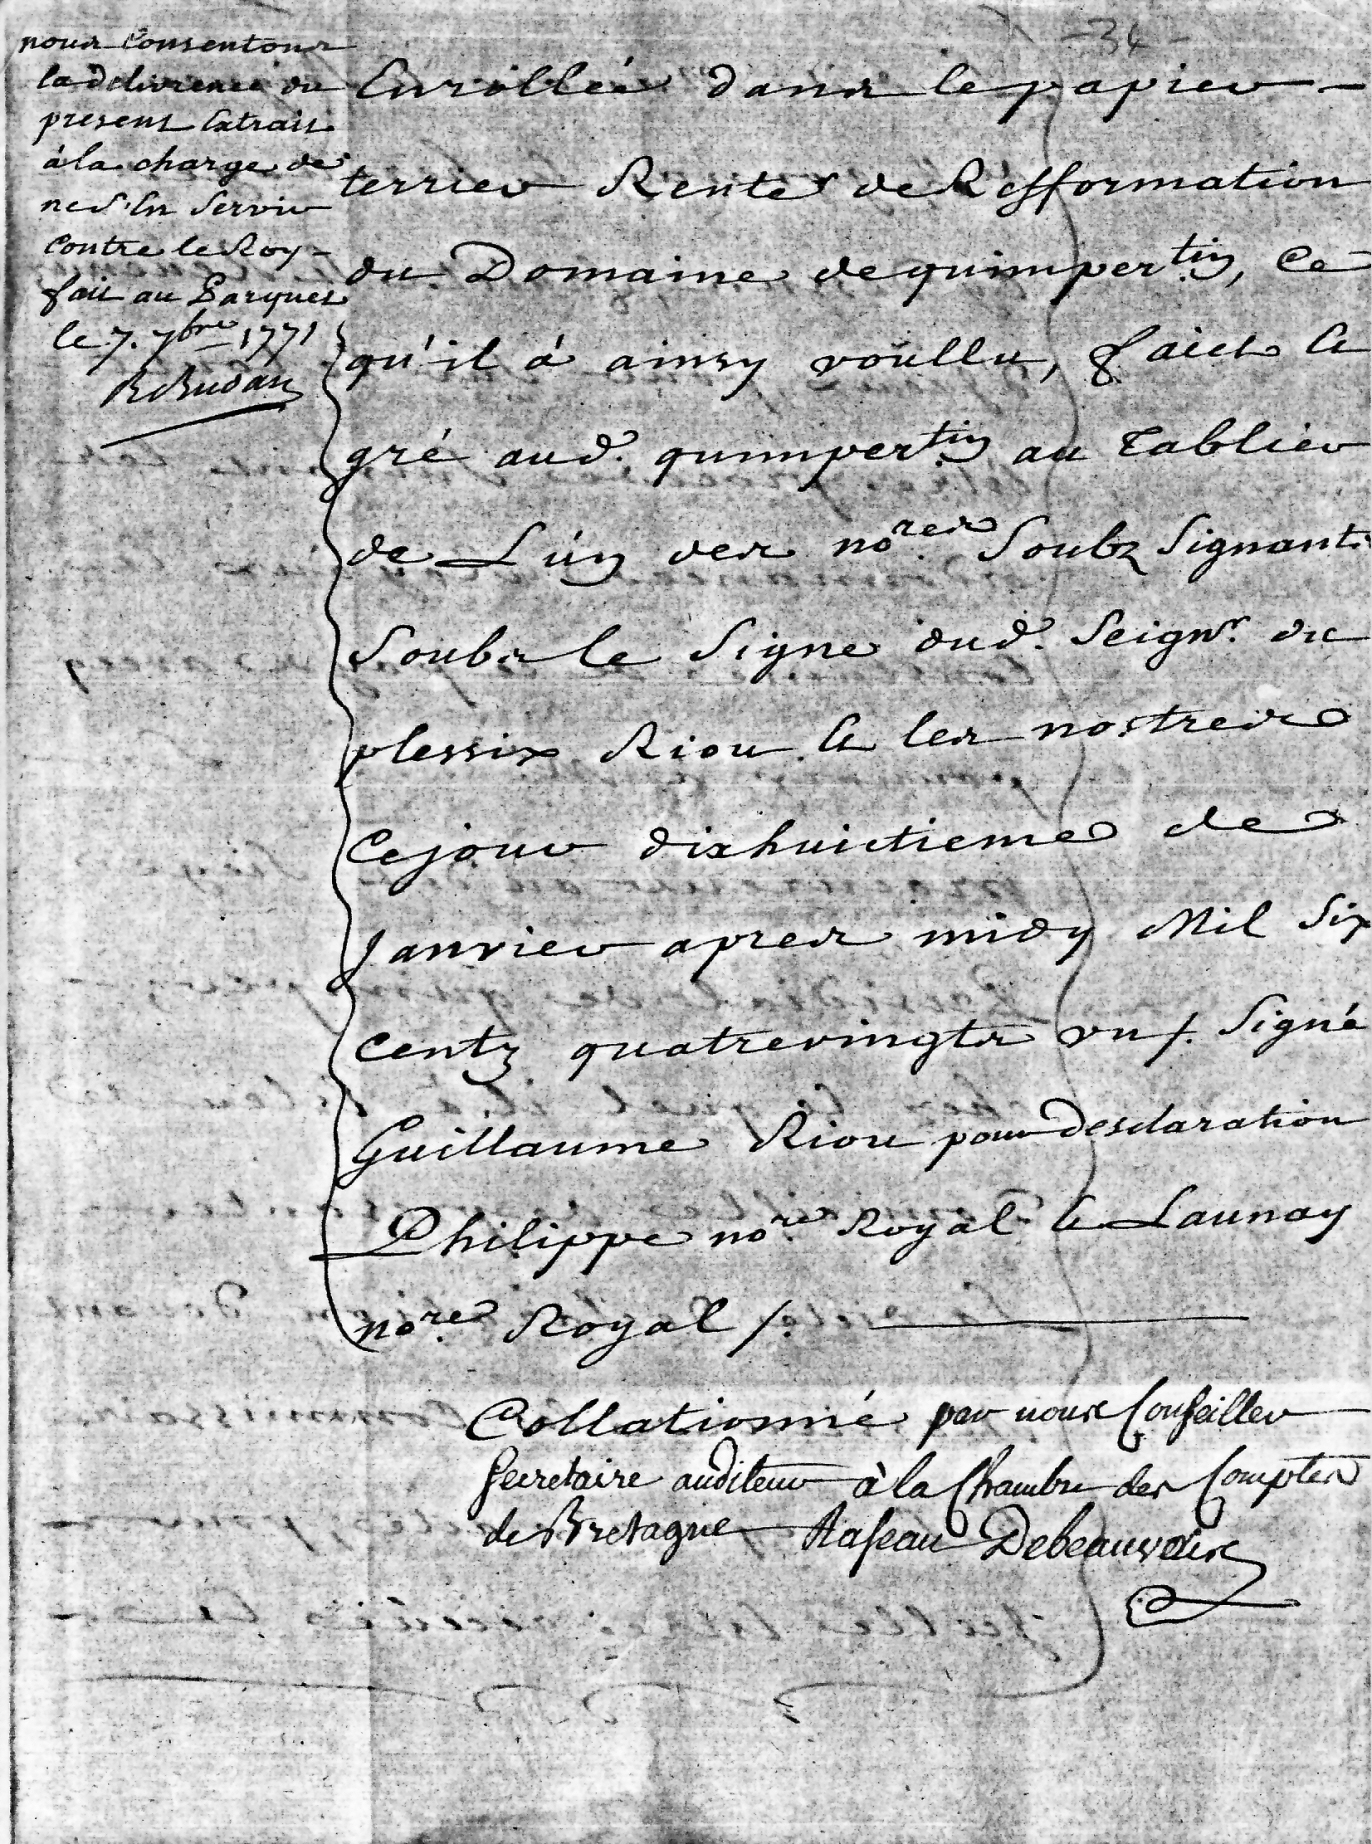 -34-
nous Consentons
la délivrence du
present Extrait
à la charge de
ne s'En Servir
Contre le Roy -
fait au Parquet
le 7. 7bre 1771
Enrollée dans le papier -
terrier Rente de Refformation
du Domaine de quimpertin, Ce
qu'il á ainsy voullu, faict Et
gré aud. quimpertin au Tablier
de L'ún des nores Soubz Signants
Soubs le Signe dud. Seignr. du
plessix Riou Et les nostres
Ce jour dixhuictieme de
Janvier apres midy Mil Six
Centz quatrevingts un /. Signé
Guillaume Riou pour desclaration
Philippe nore. Royal Et Launay
nore. Royal /.
Collationné par nous Conseiller
Secretaire auditeur à la Chambre des Comptes
de Bretagne Debeauvoir